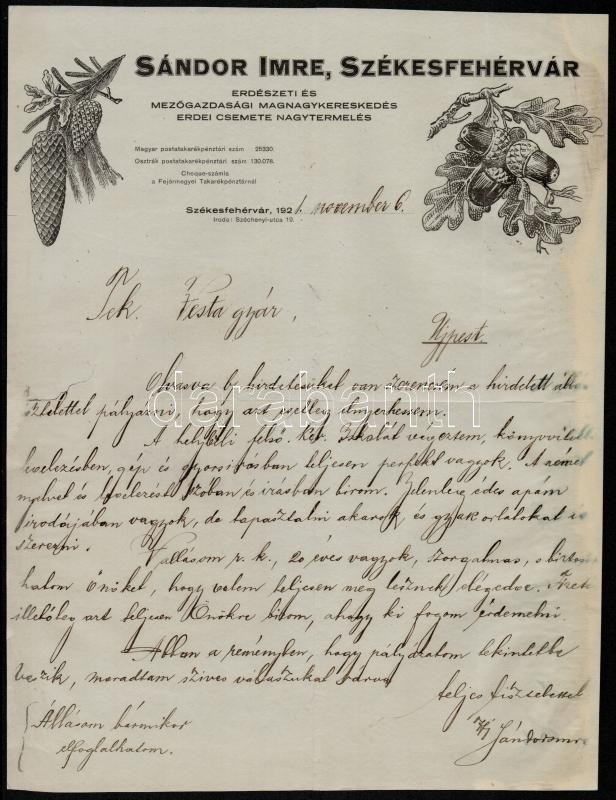 SÁNDOR IMRE, SZÉKESFEHÉRVÁR
ERDÉSZETI ÉS
MEZŐGAZDASÁGI MAGNAGYKERESKEDÉS
ERDEI CSEMETE NAGYTERMELÉS
Magyar postatakarékpénztári szám 25330.
Osztrák postatakarékpénztári szám 130.076.
Cheque-számla
a Fejérmegyei Takarékpénztárnál
Székesfehérvár, 192 november 6.
Iroda: Széchenyi-utca 19.
Tek. Vesta gyár,
Ujpest.
Olvasva b. hirdetésüket van szerencsém a hirdetett
pályázni, hogy azt esetleg elnyerhessem.
A helybéli felső ker. Iskolát végeztem,
levelezésben, gép és gyorsirásban teljesen perfekt vagyok. A német
nyelvet és levelezést szóban és irásban birom. Jelenleg édes apám
irodájában vagyok, de tapasztalni akarok és gyakorlatokat is
szerezni. Vallásom r. k., 20 éves vagyok, szorgalmas, s biztosit-
hatom Önöket, hogy velem teljesen meg lesznek elégedve.
illetőleg azt teljesen Önökre bizom, ahogy ki fogom érdemelni.
Abban a reményben, hogy pályázatom tekintetbe
veszik, maradtam szives válaszukat várva
teljes tisztelettel
Állásom bármikor
elfoglalhatom.
ifj Sándor Imre
darabanth